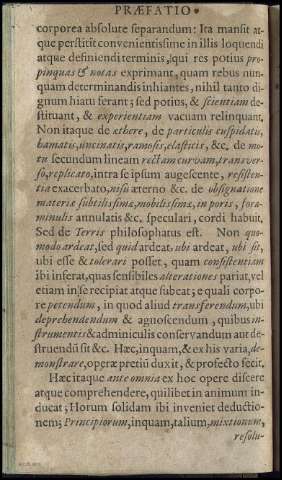 PRÆFATIO.
corporea absolute separandum: Ita mansit at-
que perstitit convenientissime in illis loquendi
atque definiendi terminis, qui res potius pro-
pinquas & notas exprimant, quam rebus nun-
quam determinandis inhiantes, nihil tanto di-
gnum hiatu ferant; sed potius, & scientiam de-
stituant, & experientiam vacuam relinquant.
Non itaque de æthere, de particulis cuspidatis,
hamatis, uncinatis, ramosis, elasticis, &c, de mo-
tu secundum lineam rectam curvam, transver-
so, replicato, intra se ipsum augescente, resisten-
tia exacerbato, nisu æterno &c. de obsignatione
materiæ subtilissimæ, mobilissimæ, in poris, fora-
minulis annulatis &c, speculari, cordi habuit.
Sed de Terris philosophatus est. Non quo-
modo ardeat, sed quid ardeat, ubi ardeat, ubi sit,
ubi esse & tolerari posset, quam consistentiam
ibi inferat, quas sensibiles alterationes pariat, vel
etiam in se recipiat atque subeat; e quali corpo-
re petendum, in quod aliud transferendum, ubi
deprehendendum & agnoscendum, quibus in-
strumentis & adminiculis conservandum aut de-
struendū sit &c. Hæc, inquam, & ex his varia, de-
monstrare, operæ pretiū dux it, & profecto fecit.
Hæc itaque ante omnia ex hoc opere discere
atque comprehendere, quilibet in animum in-
ducat; Horum solidam ibi inveniet deductio-
nem; Principiorum, inquam, talium, mixtionum,
resolu-